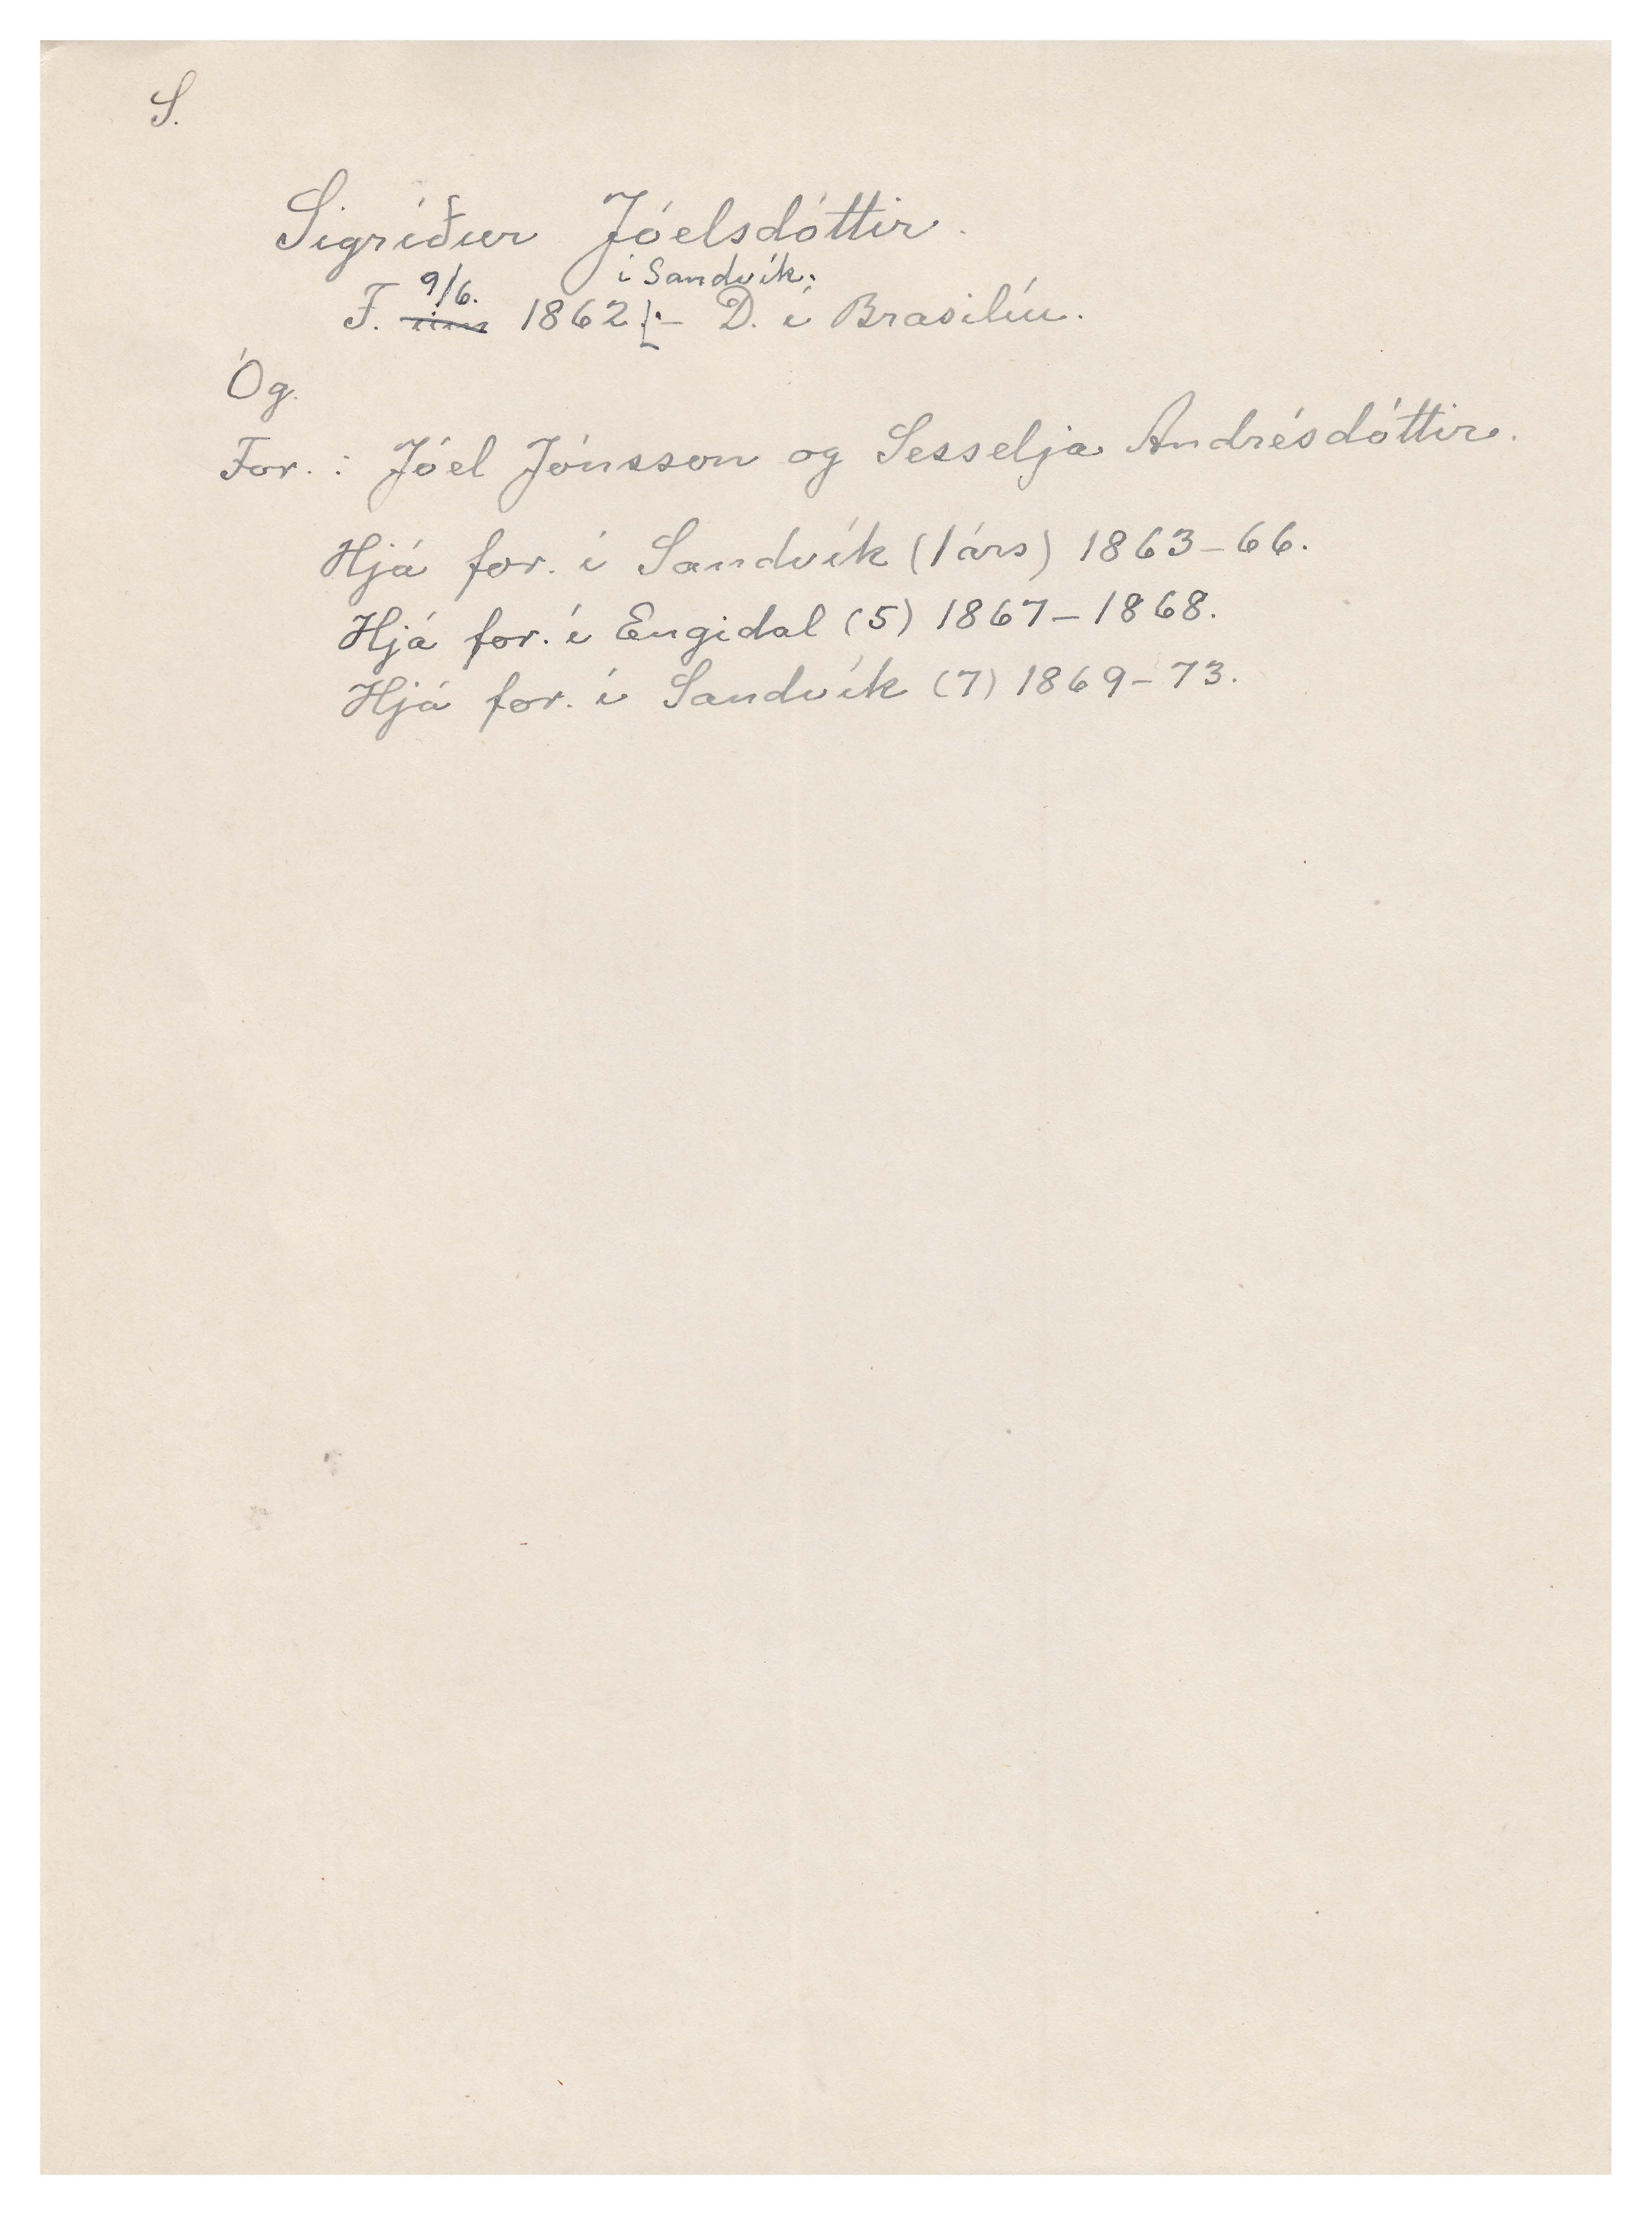 S.
Sigríður Jóelsdóttir.
í Sandvík.
9/6.
F. um 1862. - D. í Brasilíu.
Óg.
For. : Jóel Jónsson og Sesselja Andrésdóttir.
Hjá for. í Sandvík (1 árs) 1863-66.
Hjá for. í Engidal (5) 1867-1868.
Hjá for. í Sandvík (7) 1869-73.